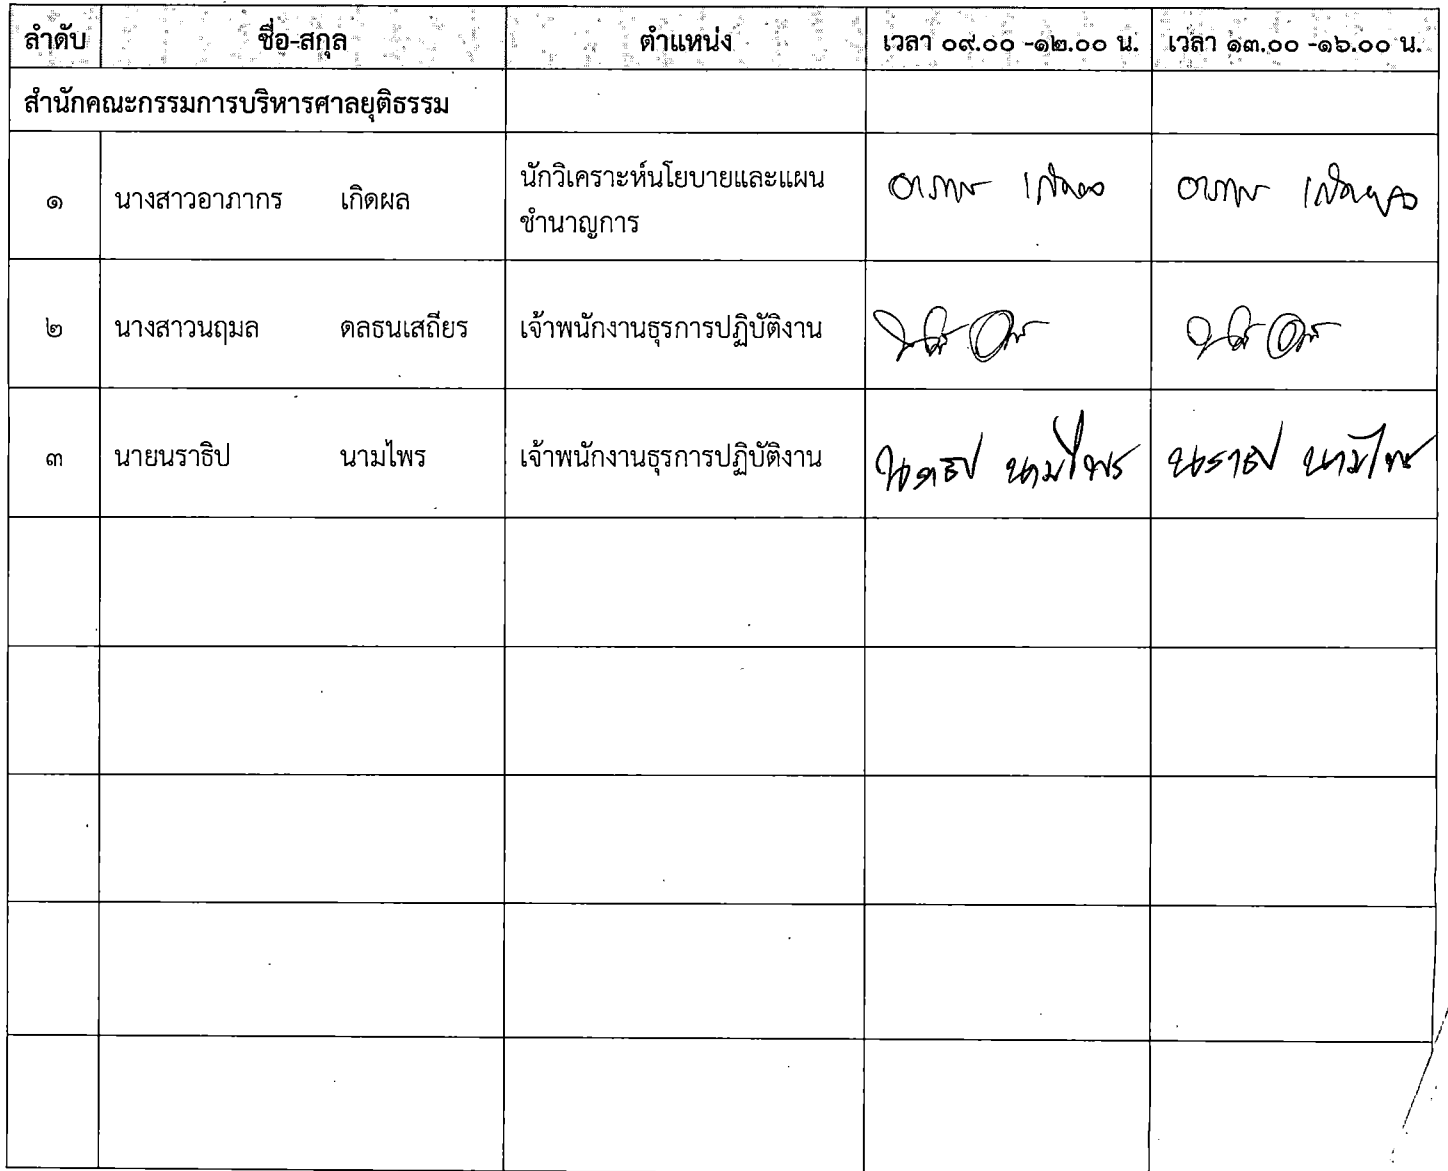 ลำดับ ชื่อ-สกุล ตำแหน่ง เวลา ๐๙.๐๐ -๑๒.๐๐ น. เวลา ๑๓.๐๐ -๑๖.๐๐ น.
สำนักคณะกรรมการบริหารศาลยุติธรรม
๑ นางสาวอาภากร เกิดผล นักวิเคราะห์นโยบายและแผน
ชำนาญการ
อาภากร เกิดผล อาภากร เกิดผล
๒ นางสาวนฤมล ดลธนเสถียร เจ้าพนักงานธุรการปฏิบัติงาน
๓ นายนราธิป นามไพร เจ้าพนักงานธุรการปฏิบัติงาน นราธิป นามไพร นราธิป นามไพร